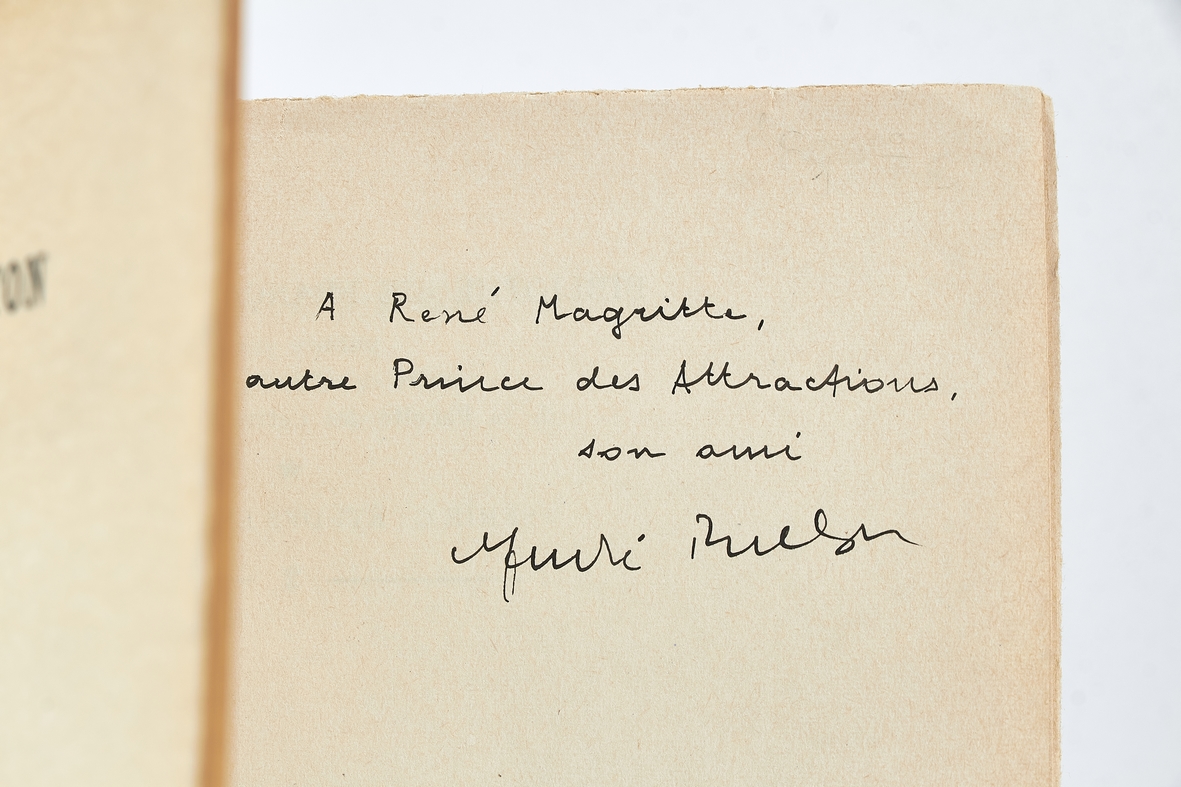 ON
A René Magritte,
autre Prince des Attractions,
son ami